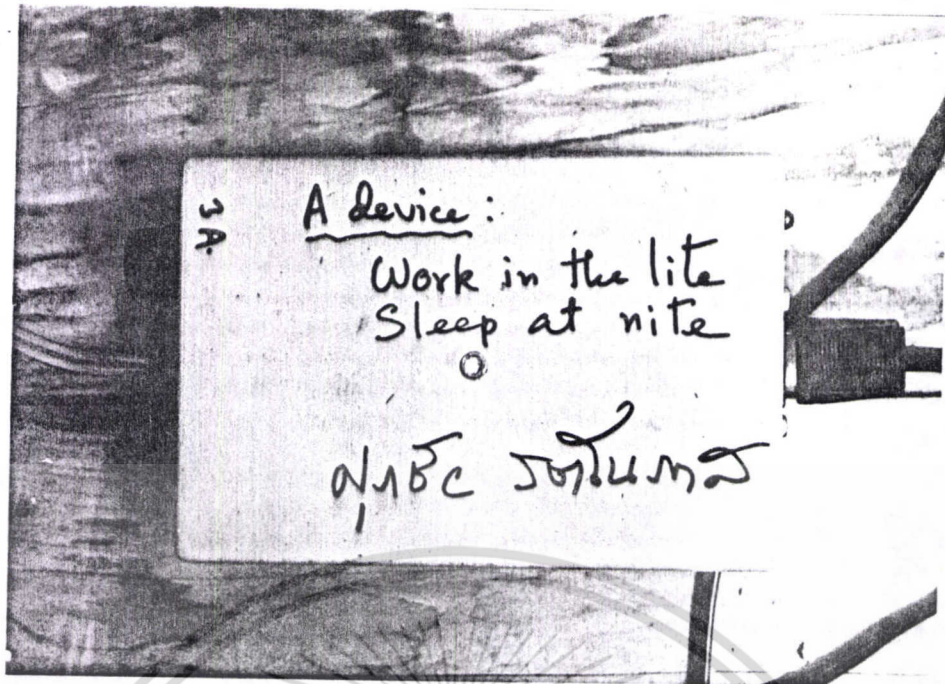 3A
A device:
Work in the lite
Sleep at nite